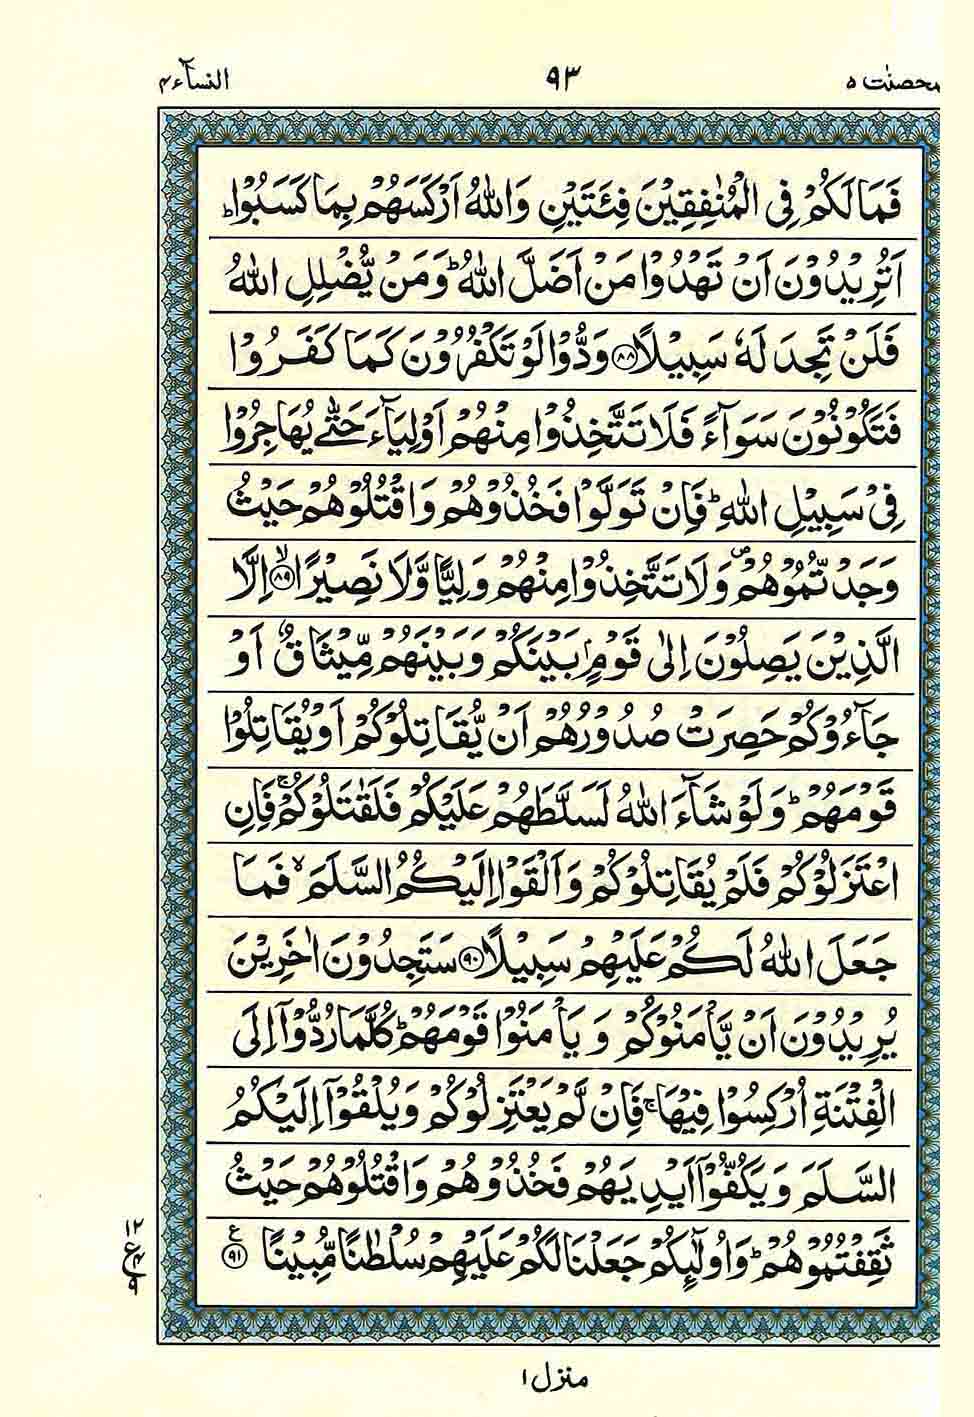 محصنت ۵
۹۳
النسآء ۴
فَمَا لَكُمْ فِی الْمُنٰفِقِیْنَ فِئَتَیْنِ وَاللّٰهُ اَرْكَسَهُمْ بِمَا كَسَبُوْاؕ
اَتُرِیْدُوْنَ اَنْ تَهْدُوْا مَنْ اَضَلَّ اللّٰهُؕ وَمَنْ یُّضْلِلِ اللّٰهُ
فَلَنْ تَجِدَ لَهٗ سَبِیْلًا ﴿۸۸﴾ وَدُّوْا لَوْ تَكْفُرُوْنَ كَمَا كَفَرُوْا
فَتَكُوْنُوْنَ سَوَآءً فَلَا تَتَّخِذُوْا مِنْهُمْ اَوْلِیَآءَ حَتّٰی یُهَاجِرُوْا
فِیْ سَبِیْلِ اللّٰهِؕ فَاِنْ تَوَلَّوْا فَخُذُوْهُمْ وَاقْتُلُوْهُمْ حَیْثُ
وَجَدْتُّمُوْهُمْ۪ وَلَا تَتَّخِذُوْا مِنْهُمْ وَلِیًّا وَّلَا نَصِیْرًا ﴿۸۹﴾ۙ اِلَّا
الَّذِیْنَ یَصِلُوْنَ اِلٰی قَوْمٍۭ بَیْنَكُمْ وَبَیْنَهُمْ مِّیْثَاقٌ اَوْ
جَآءُوْكُمْ حَصِرَتْ صُدُوْرُهُمْ اَنْ یُّقَاتِلُوْكُمْ اَوْ یُقَاتِلُوْا
قَوْمَهُمْؕ وَلَوْ شَآءَ اللّٰهُ لَسَلَّطَهُمْ عَلَیْكُمْ فَلَقٰتَلُوْكُمْۚ فَاِنِ
اعْتَزَلُوْكُمْ فَلَمْ یُقَاتِلُوْكُمْ وَاَلْقَوْا اِلَیْكُمُ السَّلَمَۙ فَمَا
جَعَلَ اللّٰهُ لَكُمْ عَلَیْهِمْ سَبِیْلًا ﴿۹۰﴾ سَتَجِدُوْنَ اٰخَرِیْنَ
یُرِیْدُوْنَ اَنْ یَّاْمَنُوْكُمْ وَیَاْمَنُوْا قَوْمَهُمْؕ كُلَّمَا رُدُّوْۤا اِلَی
الْفِتْنَةِ اُرْكِسُوْا فِیْهَاۚ فَاِنْ لَّمْ یَعْتَزِلُوْكُمْ وَیُلْقُوْۤا اِلَیْكُمُ
السَّلَمَ وَیَكُفُّوْۤا اَیْدِیَهُمْ فَخُذُوْهُمْ وَاقْتُلُوْهُمْ حَیْثُ
ثَقِفْتُمُوْهُمْؕ وَاُولٰٓئِكُمْ جَعَلْنَا لَكُمْ عَلَیْهِمْ سُلْطٰنًا مُّبِیْنًا ﴿۹۱﴾ ع
۱۲
ع ۴
۹
منزل ۱